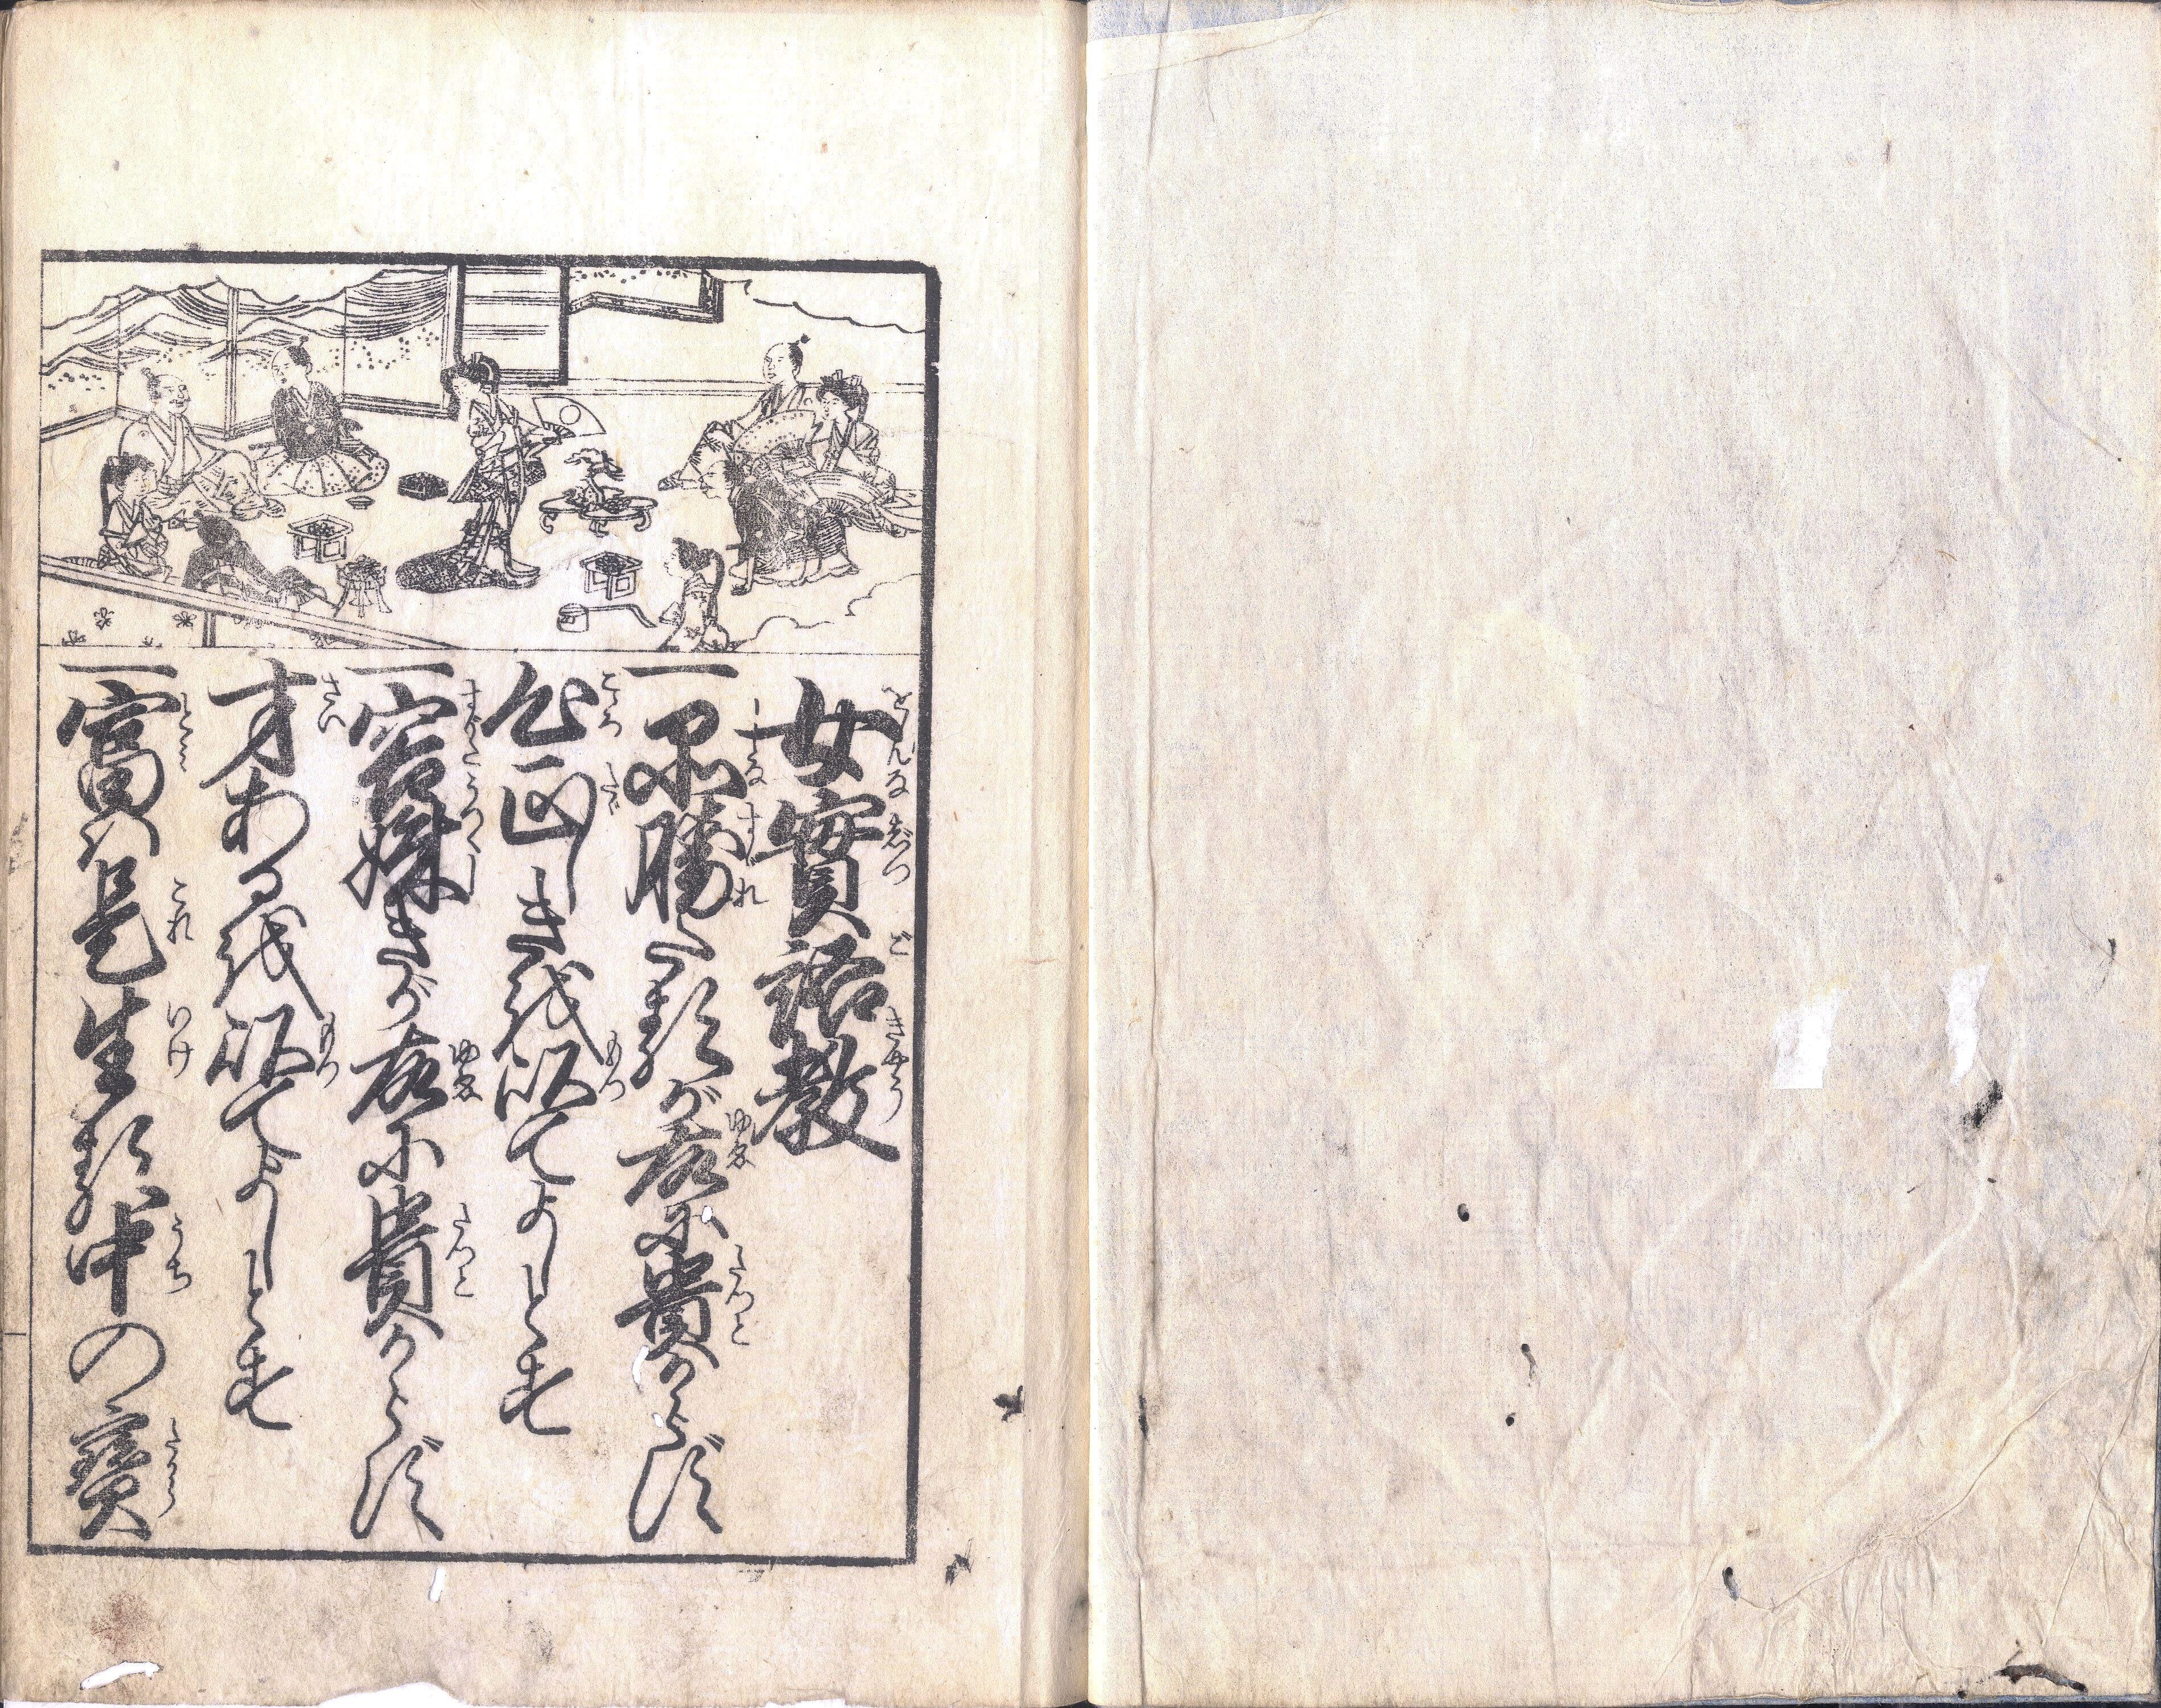 女實語教
一品勝たるが故に貴からず
心正しきを以てよしとす
一容姝きが故に貴からず
才あるを以てよしとす
一富は是生る中の寳